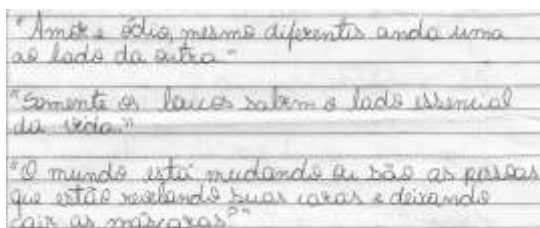 "Amor e ódio, mesmo diferentes anda uma
ao lado da outra"
"Somente os loucos sabem o lado essencial
da vida."
"O mundo está mudando ou são as pessoas
que estão revelando suas caras e deixando
cair as máscaras?"